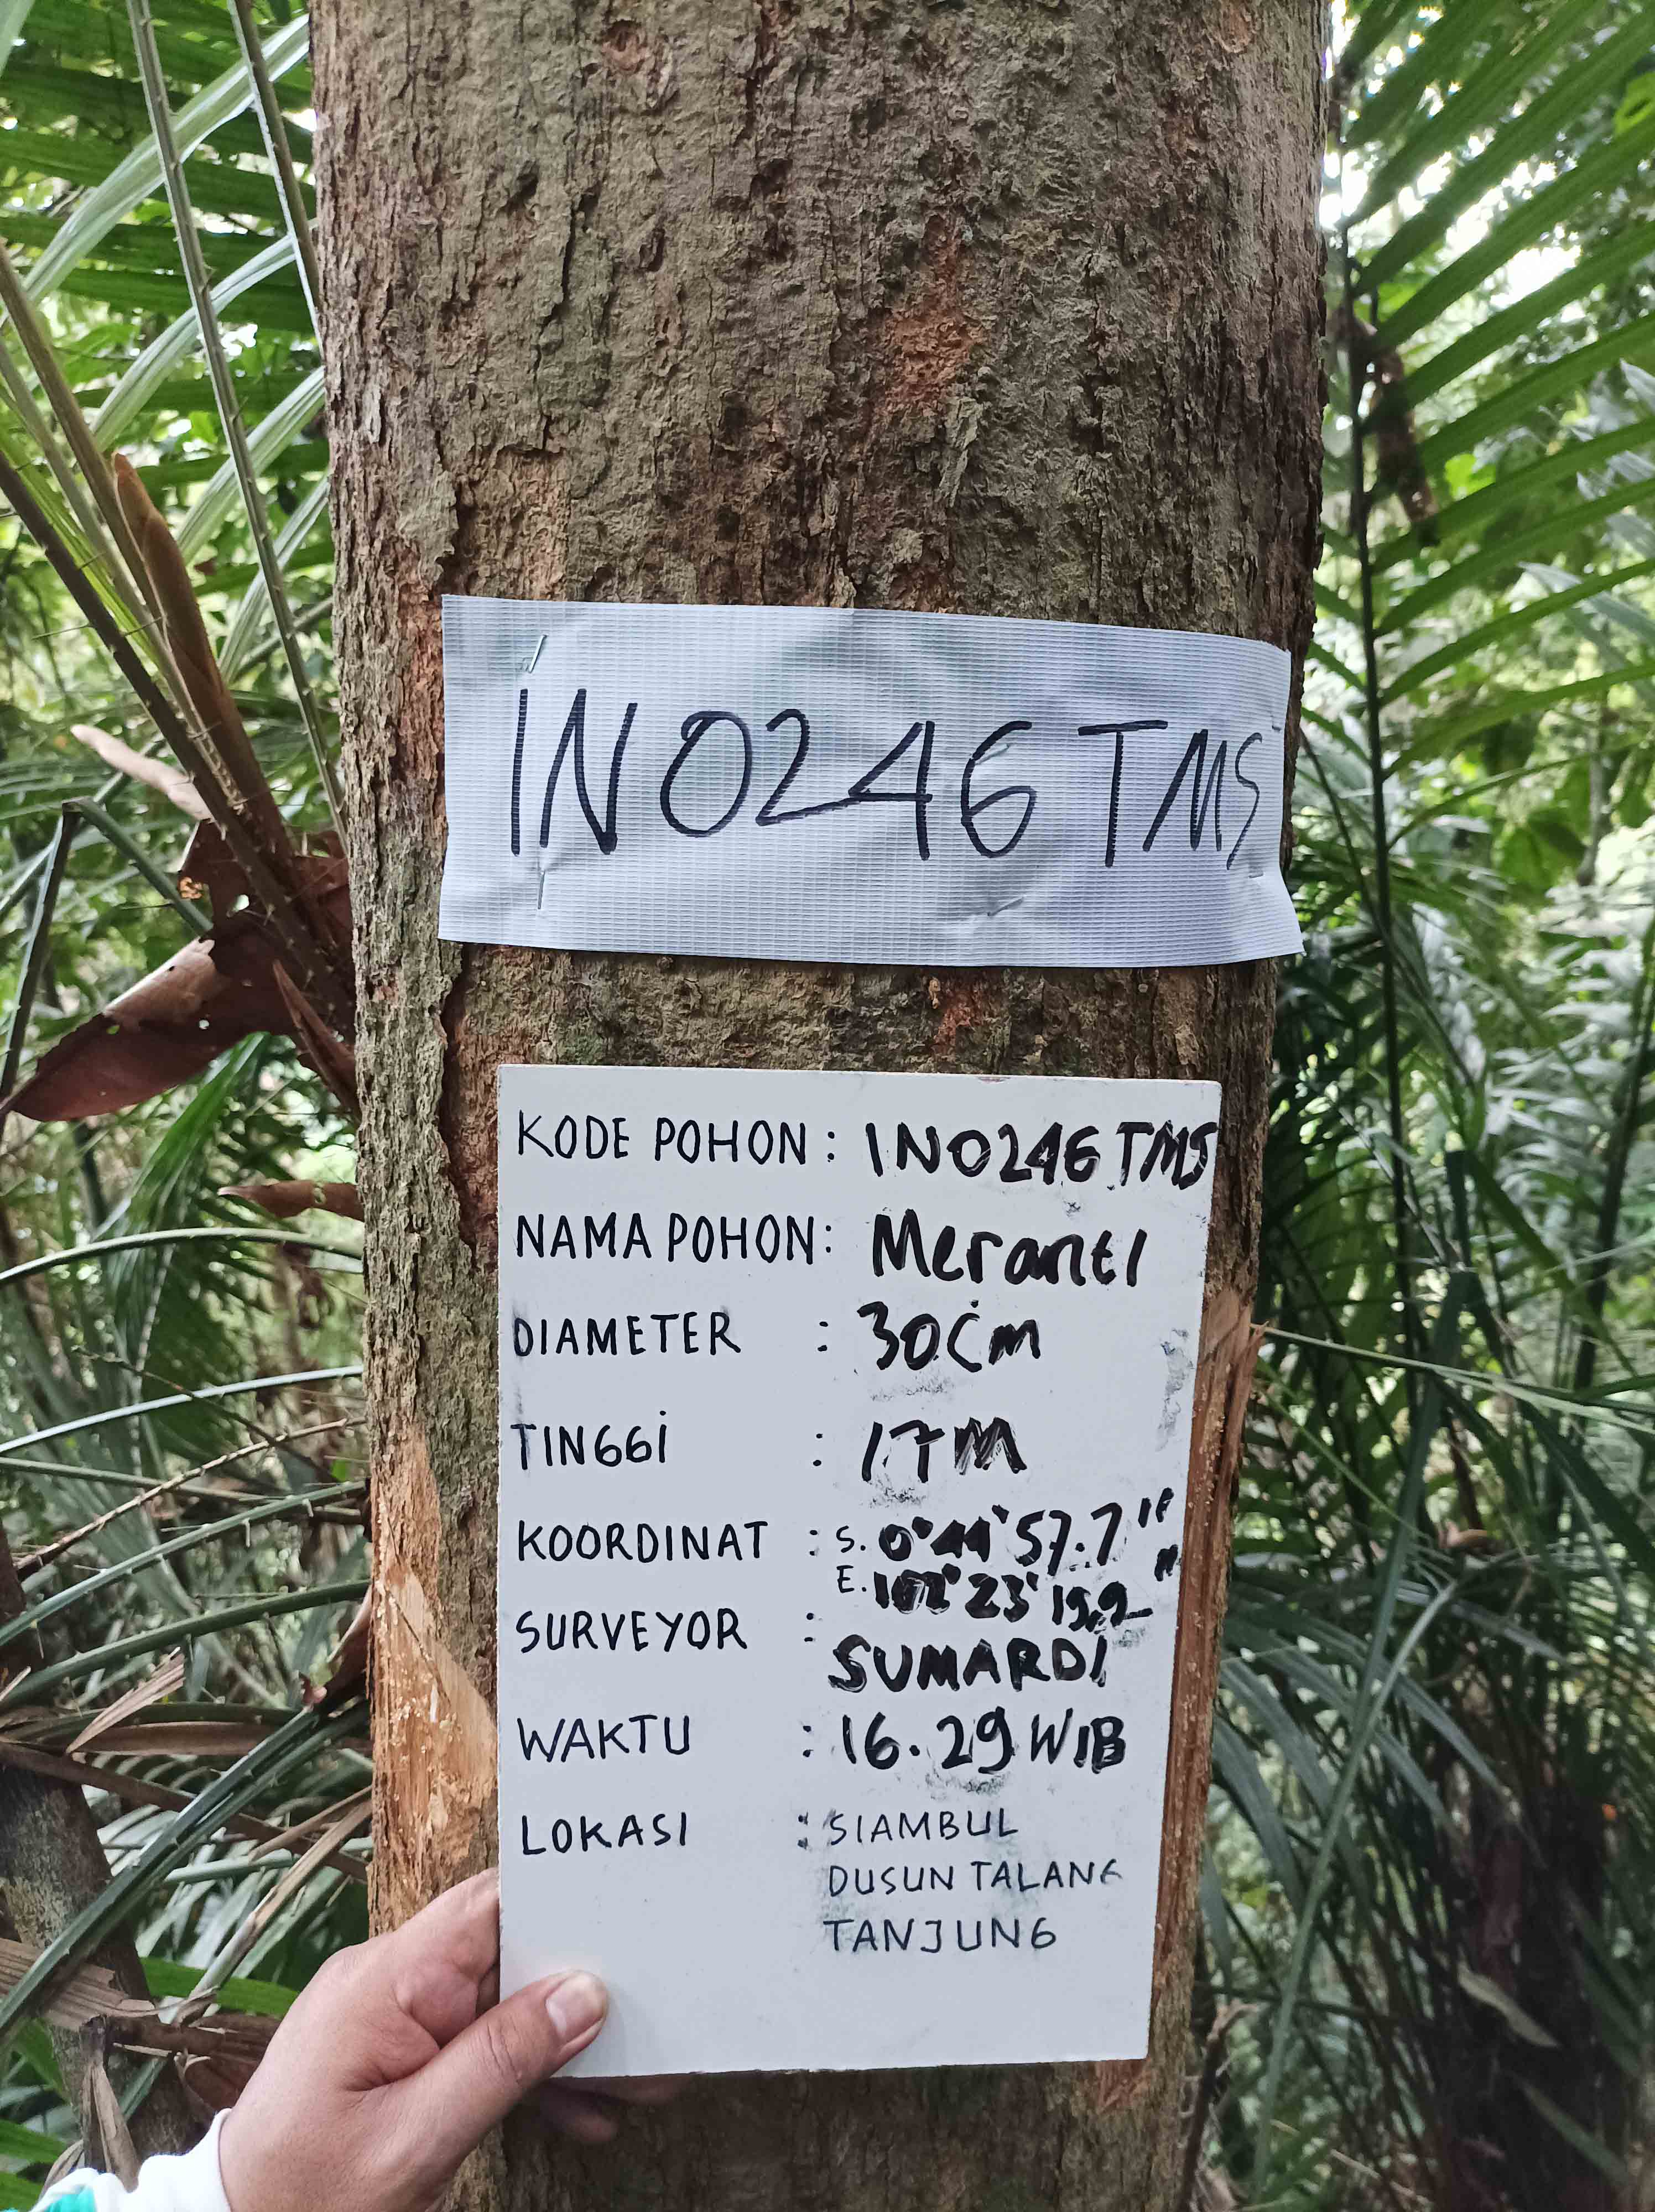 INO246TMS
KODE POHON : INO246TMS
NAMA POHON : Meranti
DIAMETER : 30Cm
TINGGI : 17M
KOORDINAT : S. 0°44'57.7"
E. 102°23'19.2"
SURVEYOR : SUMARDI
WAKTU : 16.29 WIB
LOKASI : SIAMBUL
DUSUN TALANG
TANJUNG